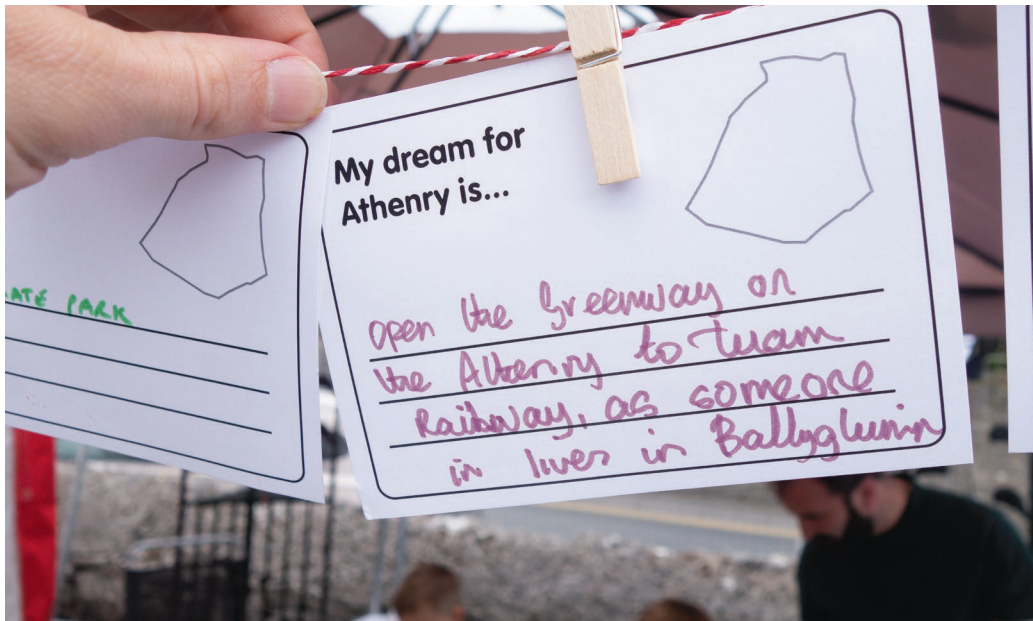 ATE PARK
My dream for
Athenry is...
open the Greenway on
the Athenry to Tuam
Railway, as someone
in lives in Ballyglunin